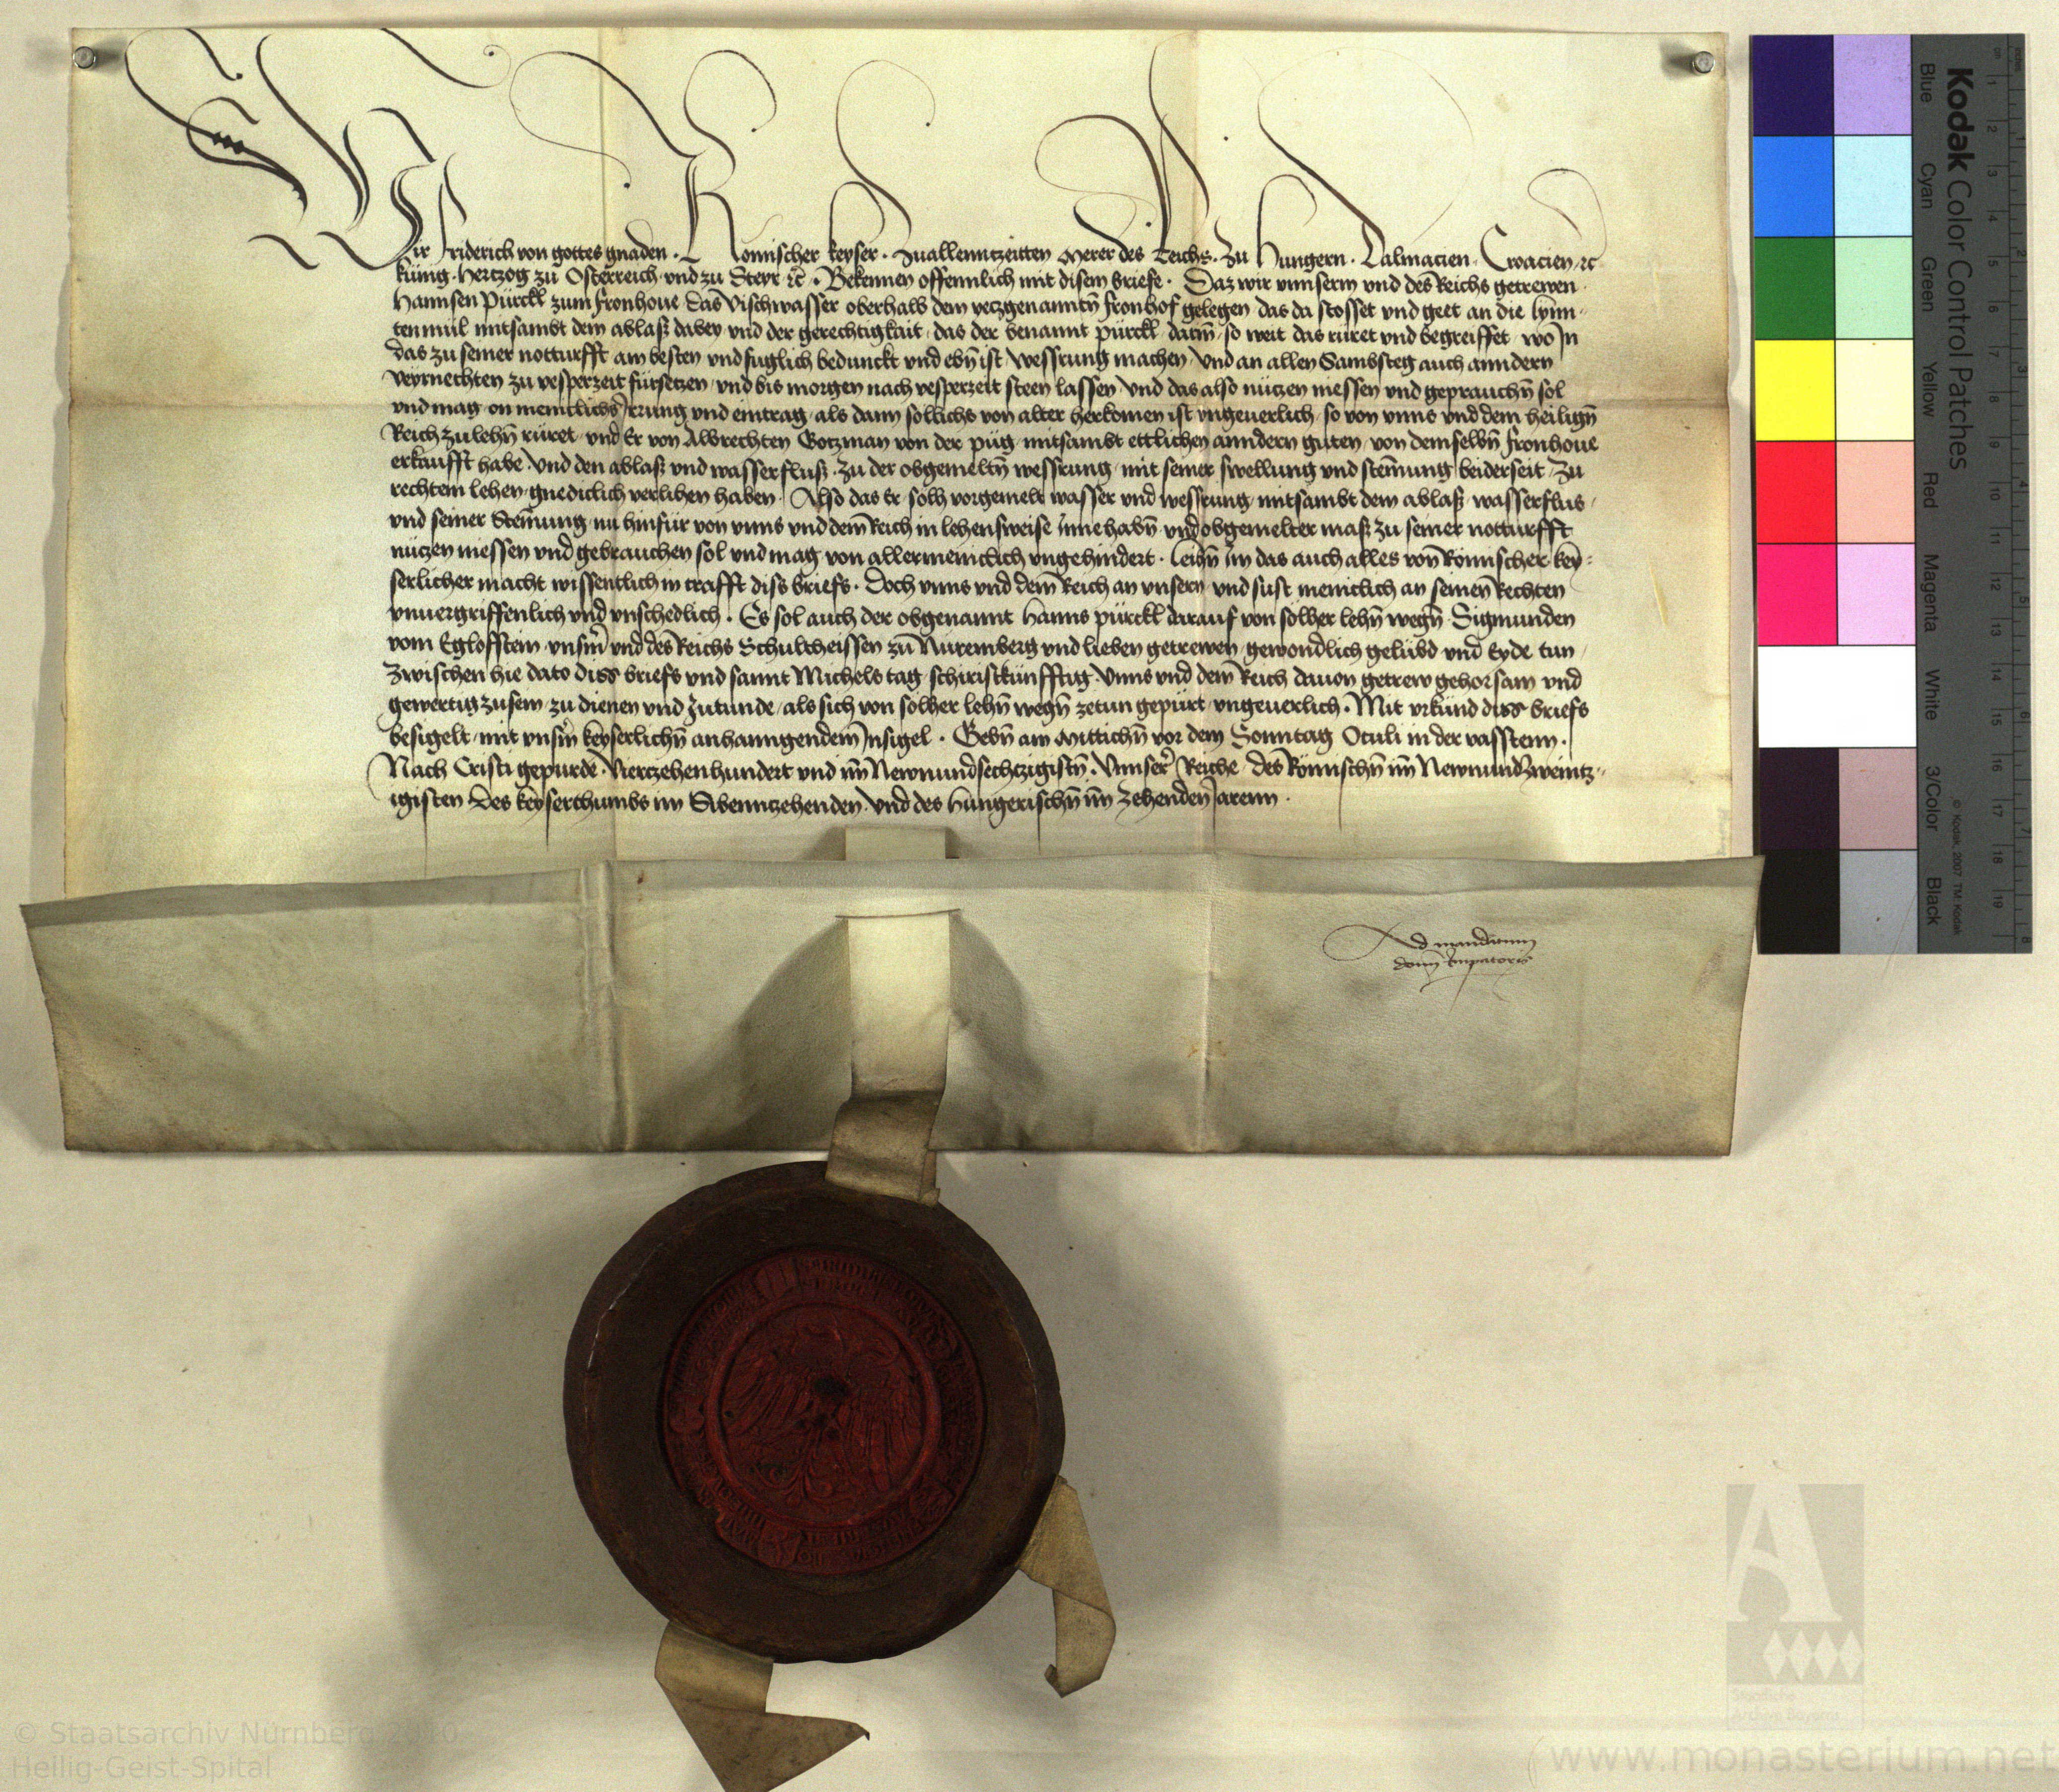 Wir Friderich von gottes gnaden · Römischer keyser · zuallenntzeitten Merer des Reichs · zu Hungern · Dalmacien · Croacien ꝛc
küng · Hertzog zu Osterreich · vnd zu Steyr ꝛc · Bekennen offennlich mit disem briefe · Daz wir vnnserm vnd des Reichs getrewen ·
Hannsen Pürckl zum fronhoue das vischwasser oberhalb dem yetzgenanntn̄ fronhof gelegen das da stosset vnd geet an die
tenmül mitsambt dem ablaß dabey vnd der gerechtigkait · das der benannt pürckl so weit das rüret vnd begreiffet wo In
das zu seiner notturfft am besten vnd fuglich bedunckt vnd ebn̄ ist / wessrung machen / Vnd an allen Sambsteg auch anndern
veyrnechten zu vesperzeit fürsetzen / vnd bis morgen nach vesperzeit steen lassen / vnd das also nützen niessen vnd geprauchn̄ sol
vnd mag on menicklichs Irrung vnd eintrag / als dann sollichs von alter herkomen ist vngeuerlich / so von vnns vnd dem heilign̄
Reich zulehn̄ rüret / vnd Er von Albrechten Gotzman von der püg mitsambt ettlichen anndern guten / von demselbn̄ fronhoue
erkaufft habe / Vnd den ablaß vnd wasserfluß zu der obgemeltn̄ wessrung / mit seiner swellung vnd beiderseit / Zu
rechtem lehen gnediclich verlihen haben · Also das Er solh vorgemelt wasser vnd wessrung mitsambt dem ablaß wasserflus /
vnd seiner nu hinfür von vnns vnd dem Reich in lehensweise Innehabn̄ vnd obgemelter maß zu seiner notturfft
nützen niessen vnd gebrauchen sol vnd mag von allermeniclich vngehindert · leihn̄ Im das auch alles von Römischer key-
serlicher macht wissentlich in crafft diss briefs · Doch vnns vnd dem Reich an vnsern / vnd sust meniclich an seinen Rechten
vnuergriffenlich vnd vnschedlich · Es sol auch der obgenannt Hanns pürckl darauf von solher lehn̄ wegn̄ Sigmunden
vom Eglofstein vnsm̄ vnd des Reichs Schultheissen zu Nüremberg vnd lieben getrewen / gewondlich gelübd vnd Eyde tun /
Zwischen hie dato diss briefs vnd sannt Michels tag schiristkünfftig Vnns vnd dem Reich dauon getrew gehorsam vnd
gewertig zusein / zu dienen vnd zutunde / als sich von solher lehn̄ wegn̄ zetun gepürt vngeuerlich · Mit vrkünd diss briefs
besigelt / mit vnsm̄ keyserlichn̄ anhanngendem Insigel · Gebn̄ am Mittichn̄ vor dem Sonntag Oculi in der vasstenn ·
Nach Cristi gepurde · Viertzehenhundert vnd im Newnundsechtzigistn̄ · Vnnser Reiche / des Römischn̄ im Newnundzweintz-
igisten Des keyserthumbs im Sibenntzehenden · vnd des Hungerischn̄ im zehenden Jarenn ·
Ad mandatum
domi Impatoris
Kodak Color Control Patches
Blue Cyan Green Yellow Red Magenta White 3/Color Black
© Kodak, 2007 TM: Kodak
© Staatsarchiv Nürnberg 2010
Heilig-Geist-Spital
www.monasterium.net